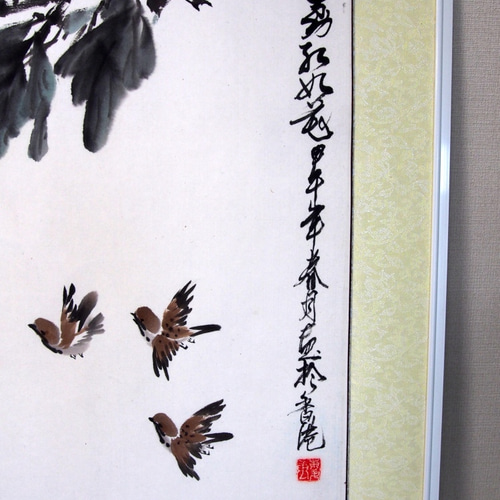 紅如花甲午年春月畫於香港